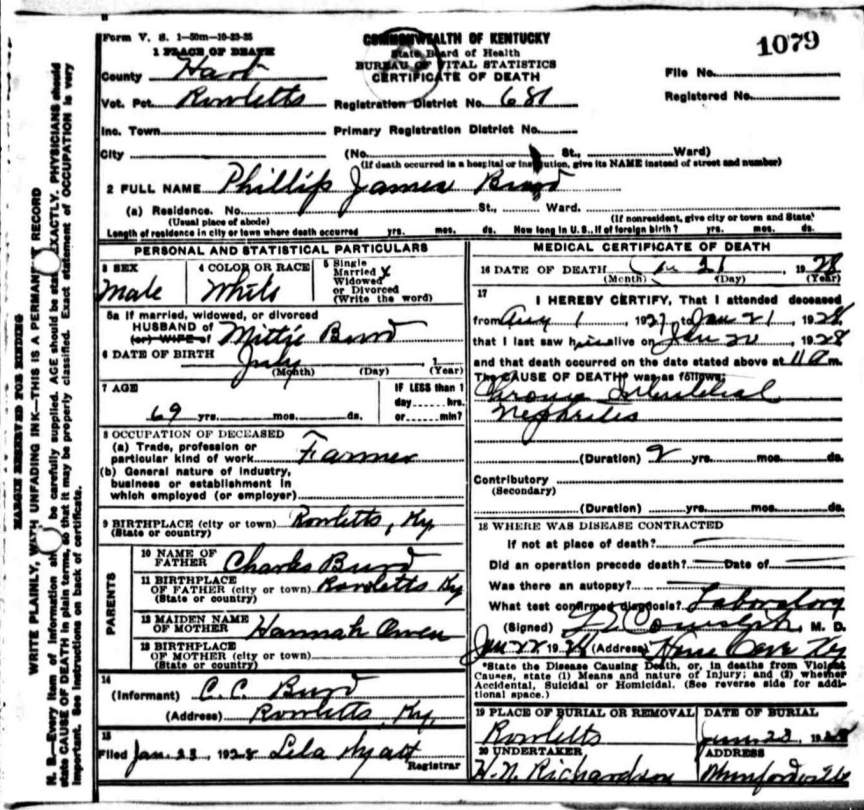 Form V. S. 1—50m—10-23-25
COMMONWEALTH OF KENTUCKY
State Board of Health
BUREAU OF VITAL STATISTICS
CERTIFICATE OF DEATH
1079
1 PLACE OF DEATH
County Hart
File No.
Vot. Pct. Rowletts
Registration District No. 681
Registered No.
Inc. Town
Primary Registration District No.
City
(No. St., Ward)
(If death occurred in a hospital or institution, give its NAME instead of street and number)
2 FULL NAME Phillip James Burd
(a) Residence. No. St., Ward.
(Usual place of abode)
(If nonresident, give city or town and State)
Length of residence in city or town where death occurred yrs. mos. ds. How long in U. S., if of foreign birth? yrs. mos. ds.
PERSONAL AND STATISTICAL PARTICULARS
3 SEX
Male
4 COLOR OR RACE
White
5 Single
Married X
Widowed
or Divorced
(Write the word)
5a If married, widowed, or divorced
HUSBAND of Mittie Burd
(or) WIFE of
6 DATE OF BIRTH July 1
(Month) (Day) (Year)
7 AGE
69 yrs. mos. ds.
IF LESS than 1
day hrs.
or min?
8 OCCUPATION OF DECEASED
(a) Trade, profession or
particular kind of work Farmer
(b) General nature of industry,
business or establishment in
which employed (or employer)
9 BIRTHPLACE (city or town) Rowletts, Ky
(State or country)
PARENTS
10 NAME OF
FATHER Charles Burd
11 BIRTHPLACE
OF FATHER (city or town) Rowletts Ky
(State or country)
12 MAIDEN NAME
OF MOTHER Hannah Owen
13 BIRTHPLACE
OF MOTHER (city or town)
(State or country)
14
(Informant) C. C. Burd
(Address) Rowletts, Ky.
15
Filed Jan. 23, 1928 Lela Hyatt
Registrar
MEDICAL CERTIFICATE OF DEATH
16 DATE OF DEATH Jan 21 1928
(Month) (Day) (Year)
17
I HEREBY CERTIFY, That I attended deceased
from Aug 1, 1927 to Jan 21, 1928
that I last saw him alive on Jan 20, 1928
and that death occurred on the date stated above at 11 a m.
The CAUSE OF DEATH* was as follows:
Chronic Interstitial
Nephritis
(Duration) 2 yrs. mos. ds.
Contributory
(Secondary)
(Duration) yrs. mos. ds.
18 WHERE WAS DISEASE CONTRACTED
If not at place of death?
Did an operation precede death? Date of
Was there an autopsy?
What test confirmed diagnosis? Laboratory
(Signed) M. D.
Jan 22 1928 (Address) Horse Cave Ky
*State the Disease Causing Death, or, in deaths from Violent
Causes, state (1) Means and nature of Injury; and (2) whether
Accidental, Suicidal or Homicidal. (See reverse side for addi-
tional space.)
19 PLACE OF BURIAL OR REMOVAL
Rowletts
DATE OF BURIAL
Jan. 23, 1928
20 UNDERTAKER
H. N. Richardson
ADDRESS
Munfordville
MARGIN RESERVED FOR BINDING
WRITE PLAINLY, WITH UNFADING INK—THIS IS A PERMANENT RECORD
N. B.—Every item of information should be carefully supplied. AGE should be stated EXACTLY. PHYSICIANS should
state CAUSE OF DEATH in plain terms, so that it may be properly classified. Exact statement of OCCUPATION is very
important. See instructions on back of certificate.